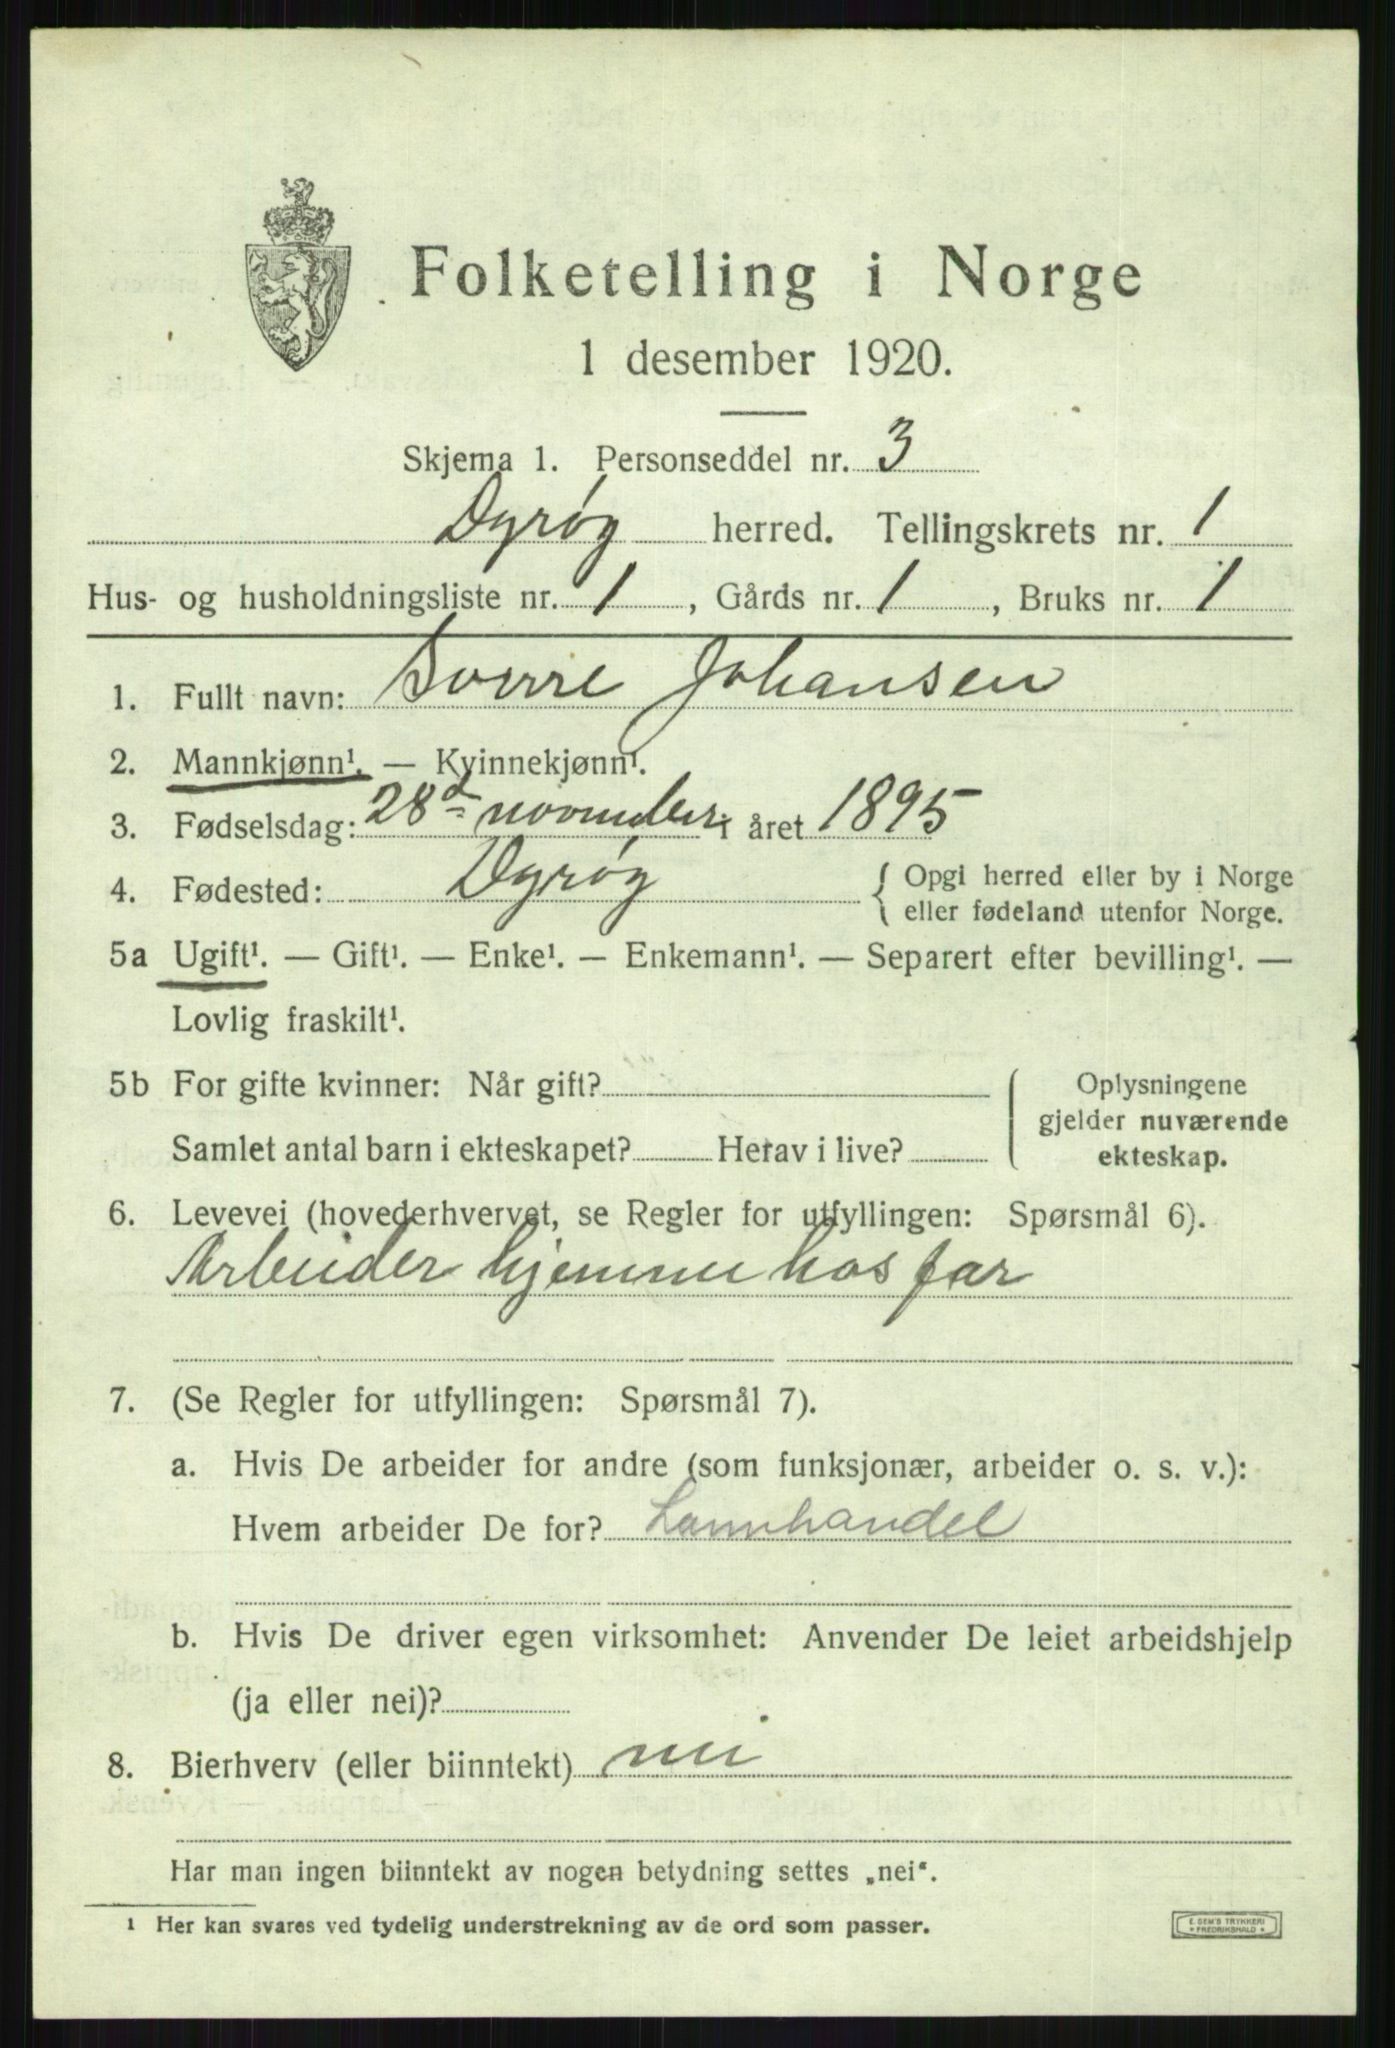 Folketelling i Norge
1 desember 1920.
Skjema 1. Personseddel nr. 3
Dyrøy herred. Tellingskrets nr. 1
Hus- og husholdningsliste nr. 1, Gårds nr. 1, Bruks nr. 1
1. Fullt navn: Sverre Johansen
2. Mannkjønn¹. — Kvinnekjønn¹.
3. Fødselsdag: 28d november i året 1895
4. Fødested: Dyrøy { Opgi herred eller by i Norge
eller fødeland utenfor Norge.
5a Ugift¹. — Gift¹. — Enke¹. — Enkemann¹. — Separert efter bevilling¹. —
Lovlig fraskilt¹.
5b For gifte kvinner: Når gift? Oplysningene
gjelder nuværende
Samlet antal barn i ekteskapet? Herav i live? ekteskap.
6. Levevei (hovederhvervet, se Regler for utfyllingen: Spørsmål 6).
Arbeider hjemme hos far
7. (Se Regler for utfyllingen: Spørsmål 7).
a. Hvis De arbeider for andre (som funksjonær, arbeider o. s. v.):
Hvem arbeider De for? Lannhandel
b. Hvis De driver egen virksomhet: Anvender De leiet arbeidshjelp
(ja eller nei)?
8. Bierhverv (eller biinntekt) nei
Har man ingen biinntekt av nogen betydning settes „nei“.
1 Her kan svares ved tydelig understrekning av de ord som passer.
E. SEM'S TRYKKERI
* FREDRIKSHALD *